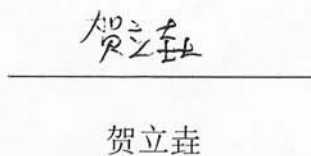 贺立垚
贺立垚